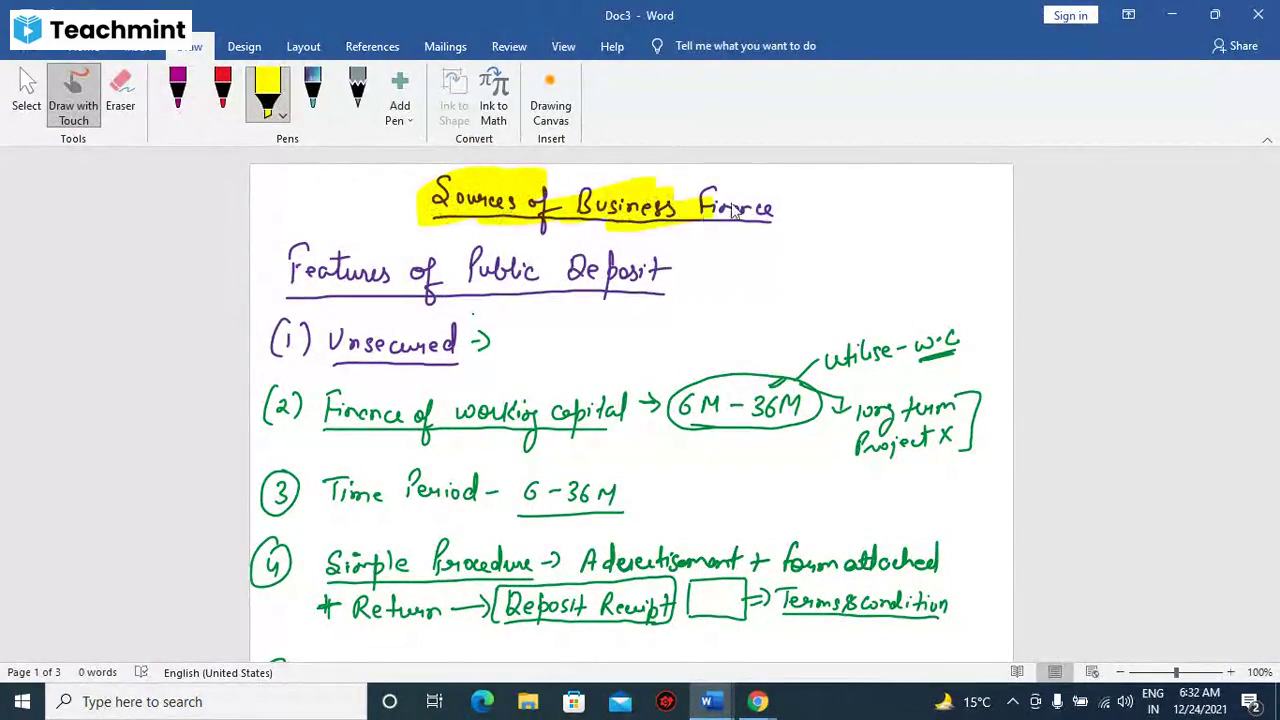 Teachmint
Doc3 - Word
Sign in
Draw Design Layout References Mailings Review View Help Tell me what you want to do Share
Select Draw with Touch Eraser Add Pen Ink to Shape Ink to Math Drawing Canvas
Tools Pens Convert Insert
Sources of Business Finance
Features of Public Deposit
(1) Unsecured →
utilise - W.C
(2) Finance of working capital → 6M - 36M → long term
Project X
3 Time Period - 6 - 36 M
4 Simple Procedure → Advertisement + form attached
* Return → Deposit Receipt ⇒ Terms & condition
Page 1 of 3 0 words English (United States) 100%
Type here to search 15°C ENG 6:32 AM
IN 12/24/2021 2